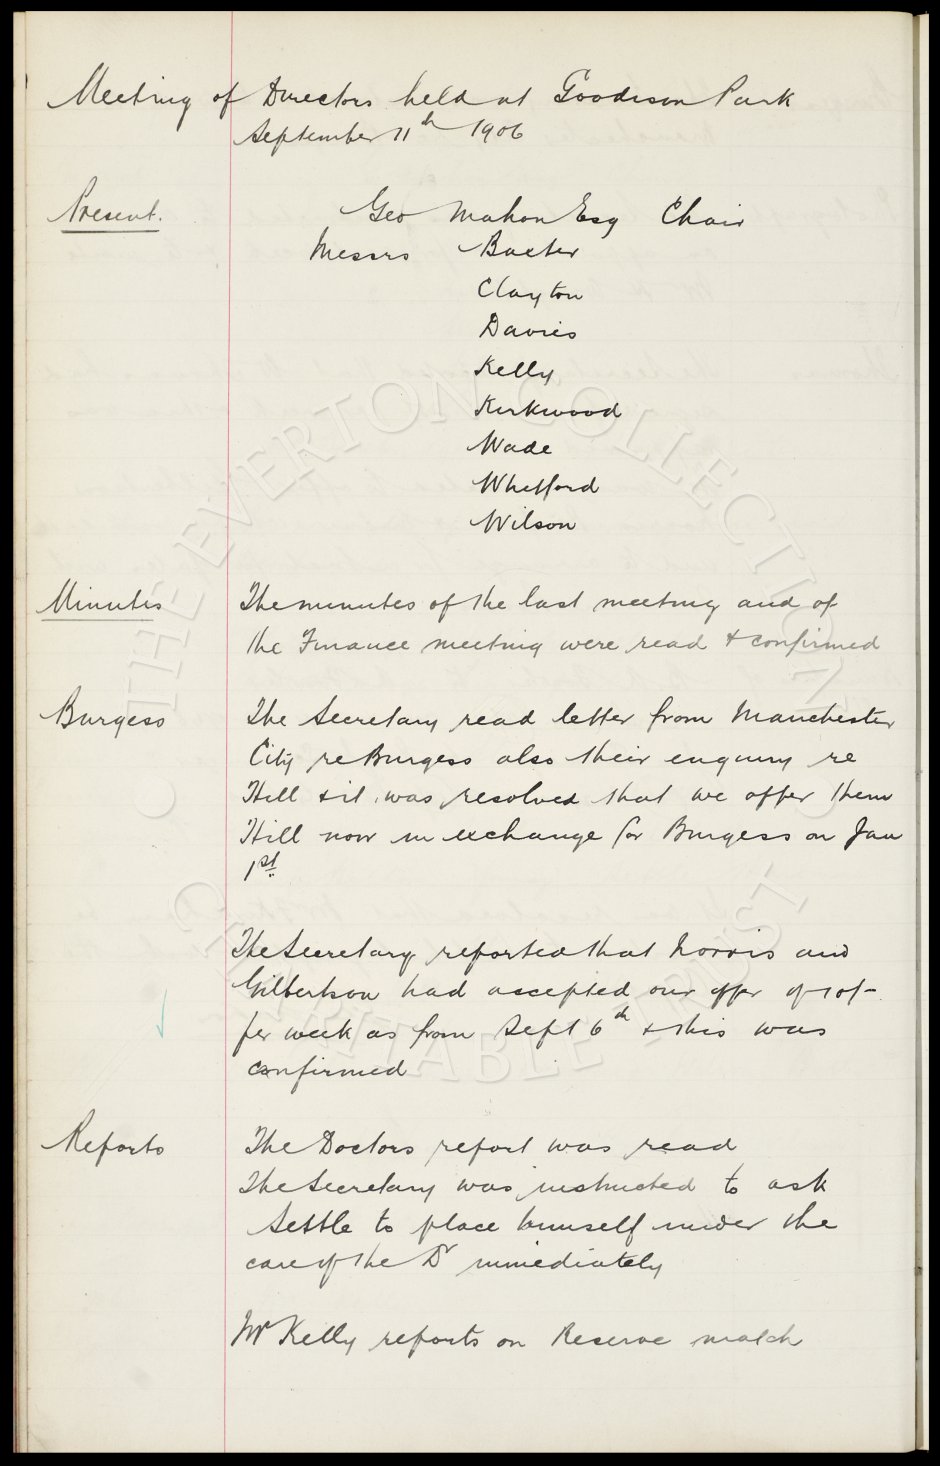 Meeting of Directors held at Goodison Park
September 11th 1906
Present. Geo Mahon Esq Chair
Messrs Baxter
Clayton
Davies
Kelly
Kirkwood
Wade
Whitford
Wilson
Minutes The minutes of the last meeting and of
the Finance meeting were read & confirmed
Burgess The Secretary read letter from Manchester
City re Burgess also their enquiry re
Hill & it was resolved that we offer them
Hill now in exchange for Burgess on Jan
1st
The Secretary reported that Norris and
Gilbertson had accepted our offer of 10/-
per week as from Sept 6th & this was
confirmed
Reports The Doctors report was read
The Secretary was instructed to ask
Settle to place himself under the
care of the Dr immediately
Mr Kelly reports on Reserve match
© THE EVERTON COLLECTION
CHARITABLE TRUST